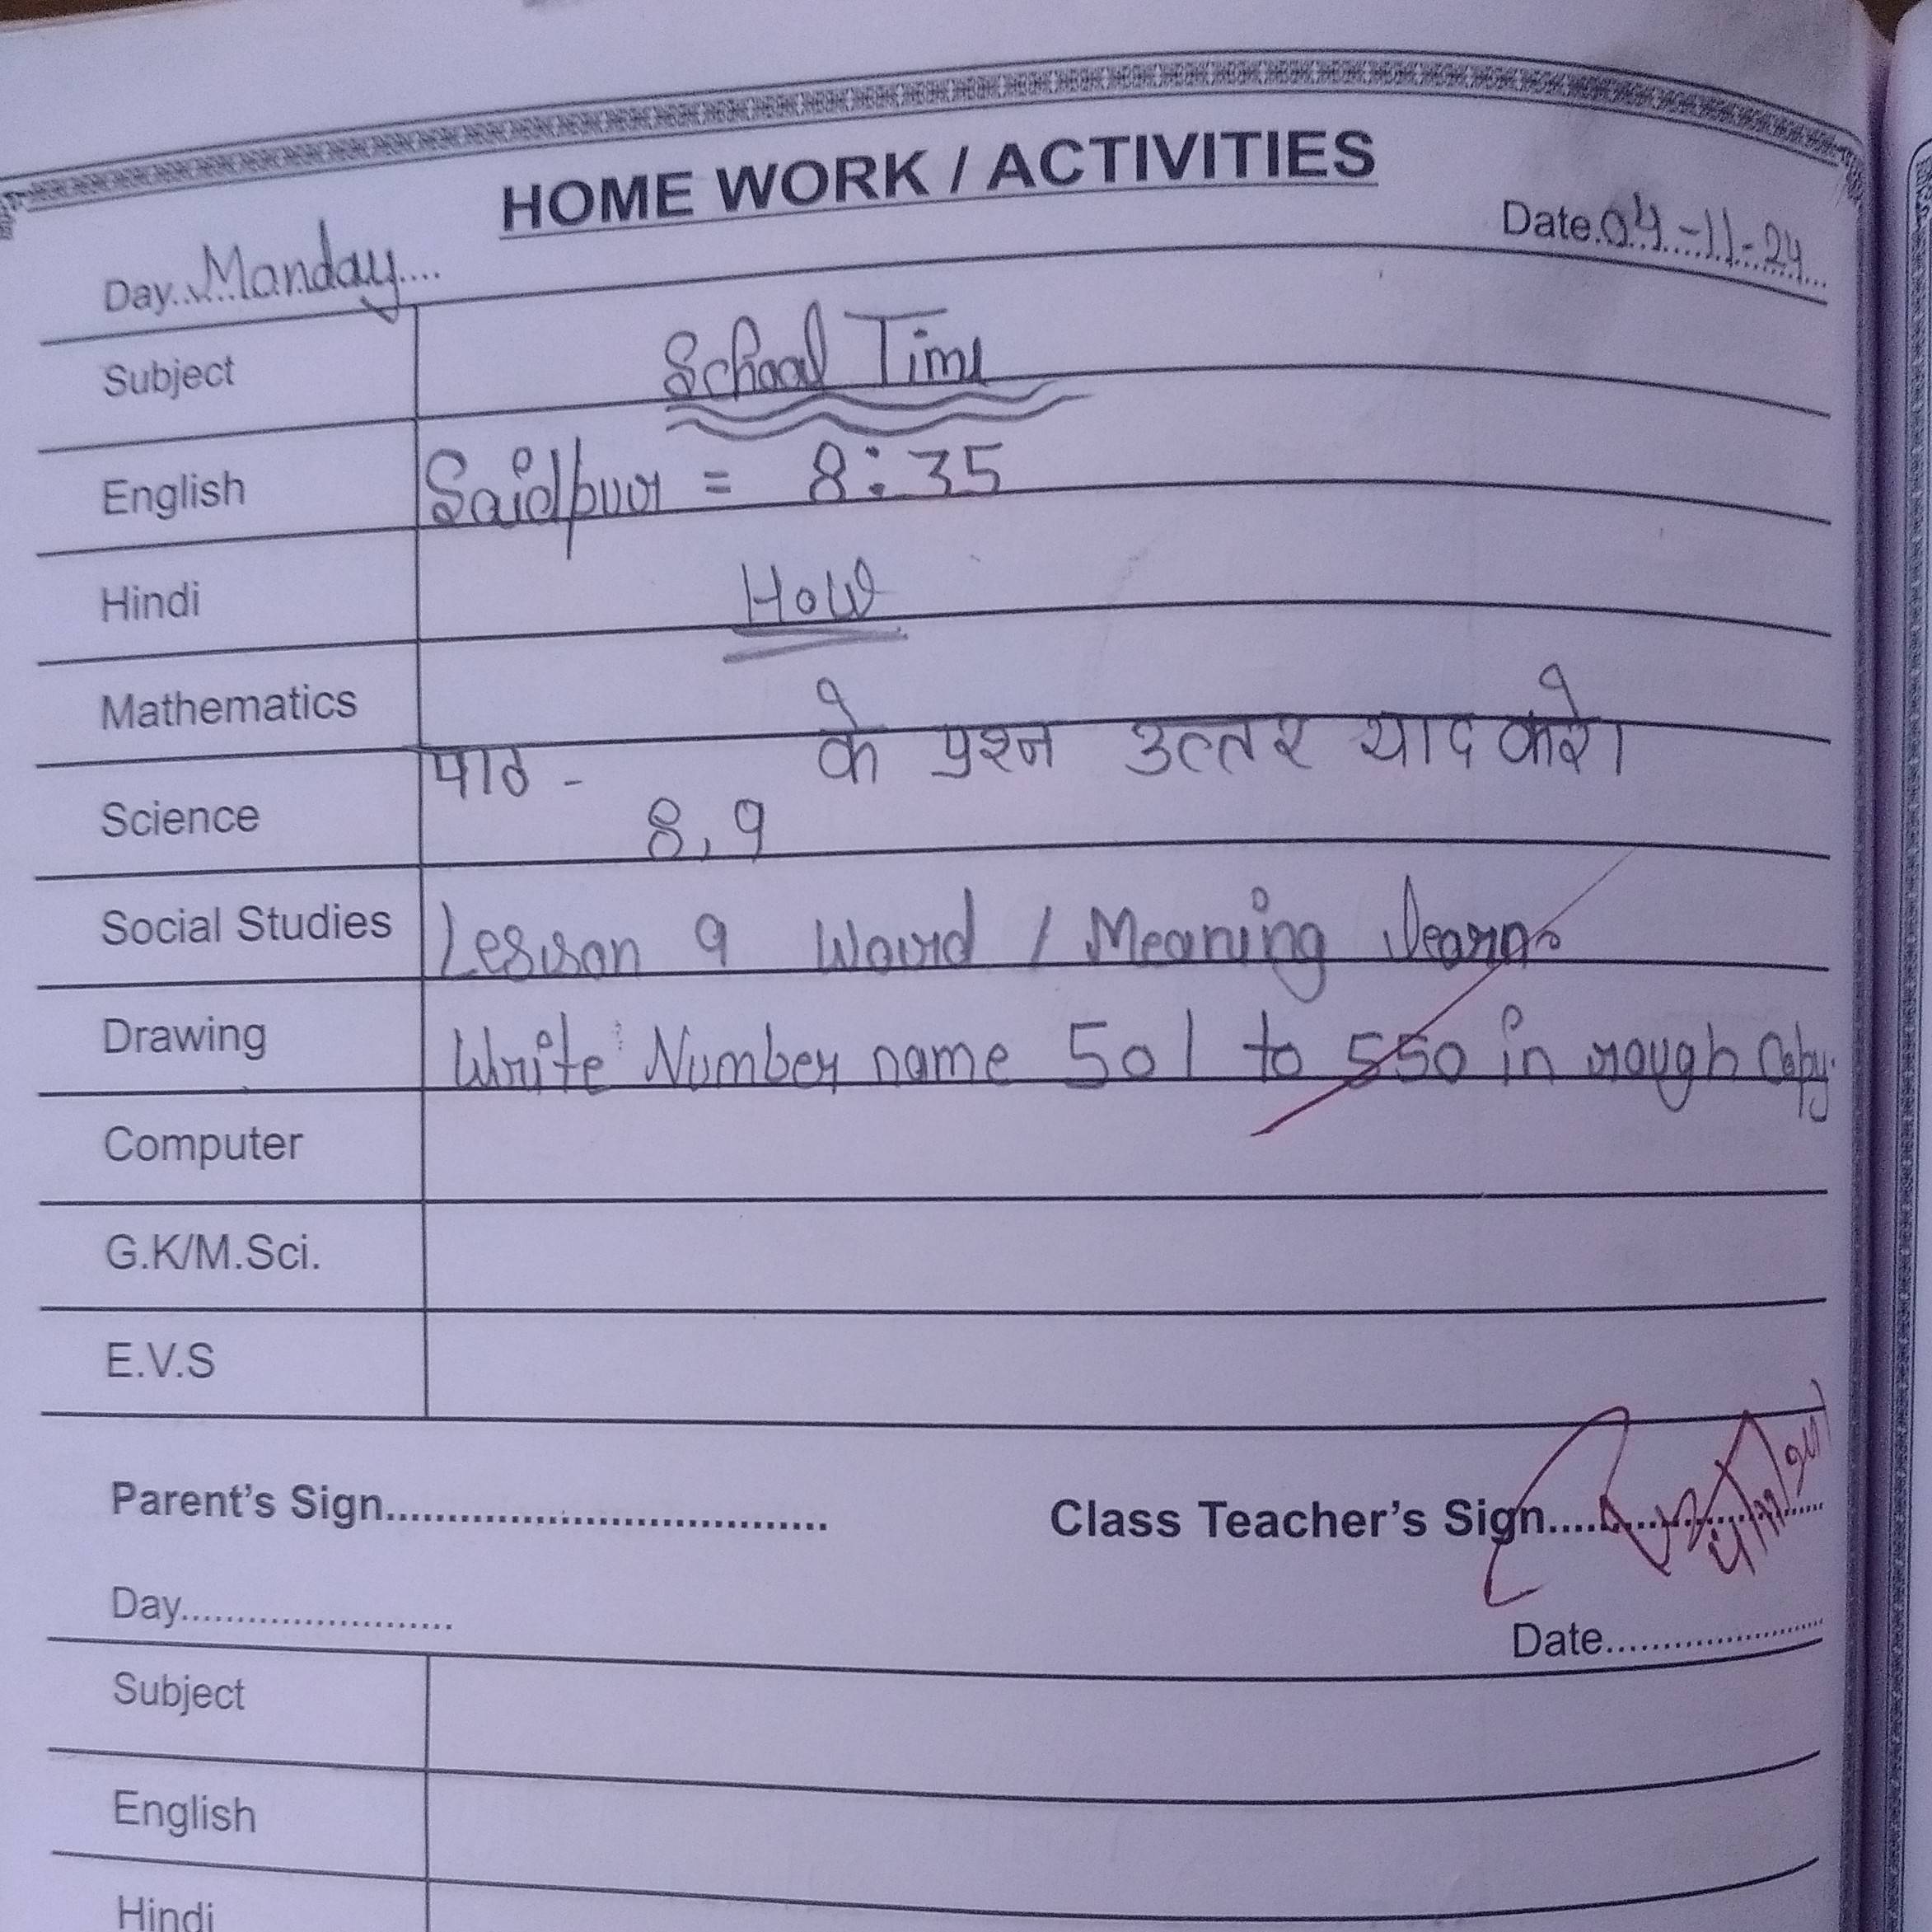 HOME WORK / ACTIVITIES
Day...Monday.... Date.04-11-24
Subject School Time
English Saidpur = 8:35
Hindi How
Mathematics
पाठ - के प्रश्न उत्तर याद करे।
Science 8, 9
Social Studies Lesson 9 Word / Meaning learn
Drawing Write Number name 501 to 550 in rough Copy.
Computer
G.K/M.Sci.
E.V.S
Parent's Sign.................... Class Teacher's Sign....................
Day.................... Date....................
Subject
English
Hindi